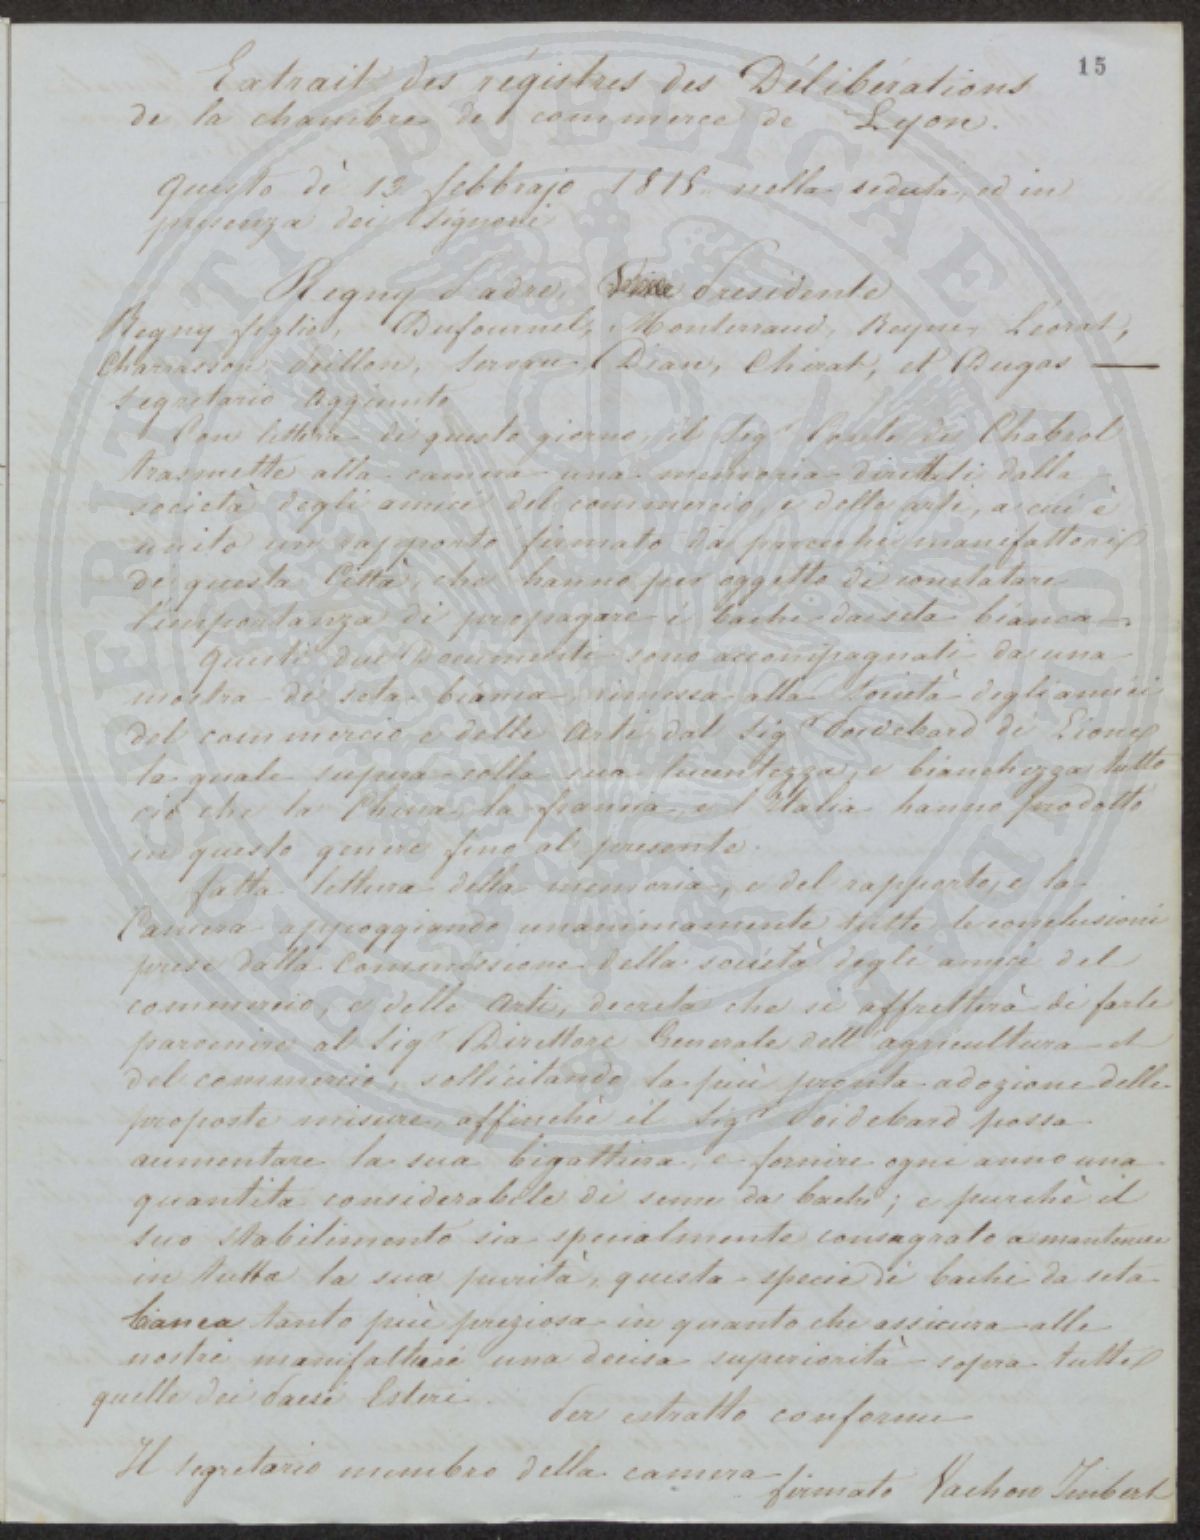 15
Extrait des régistres des Délibérations
de la chambre de commerce de Lyon.
Questo dì 12 febbrajo 1818 nella seduta, ed in
presenza dei Signori
Regny Padre, Presidente
Regny figlio, Dufournel, Monterraud, Reyne, Léorat,
Charrasson, Drillon, Dian, Chirat, et Dugas —
Segretario Aggiunto
Con lettera di questo giorno, il Sigr Conte di Chabrol
trasmette alla camera una memoria direttali dalla
società degli amici del commercio, e delle arti, a cui è
unito un rapporto firmato da parecchi manifattori
di questa Città, che hanno per oggetto di constatare
l'importanza di propagare i bachi da seta bianca.
Questi due Documenti sono accompagnati da una
mostra di seta bianca rimessa alla società degli amici
del commercio, e delle Arti dal Sigr Poidebard di Lione
la quale supera colla sua lucentezza, e bianchezza tutto
ciò che la China, la francia, e l'Italia hanno prodotto
in questo genere fino al presente.
fatta lettura della memoria, e del rapporto, e la
Camera appoggiando unanimamente tutte le conclusioni
prese dalla Commissione della società degli amici del
commercio, e delle Arti, decreta che si affretterà di farle
parvenire al Sigr Direttore Generale dell' agricultura et
del commercio, sollicitando la più pronta adozione delle
proposte misure, affinchè il Sigr Poidebard possa
aumentare la sua bigattiera, e fornire ogni anno una
quantità considerabile di seme da bachi; e purchè il
suo stabilimento sia specialmente consagrato a mantenere
in tutta la sua purità, questa specie di bachi da seta
bianca tanto più preziosa in quanto che assicura alle
nostre manifatture una decisa superiorità sopra tutte
quelle dei Paesi Esteri.
Per estratto conforme
Il segretario membro della camera
firmato Vachon Imbert